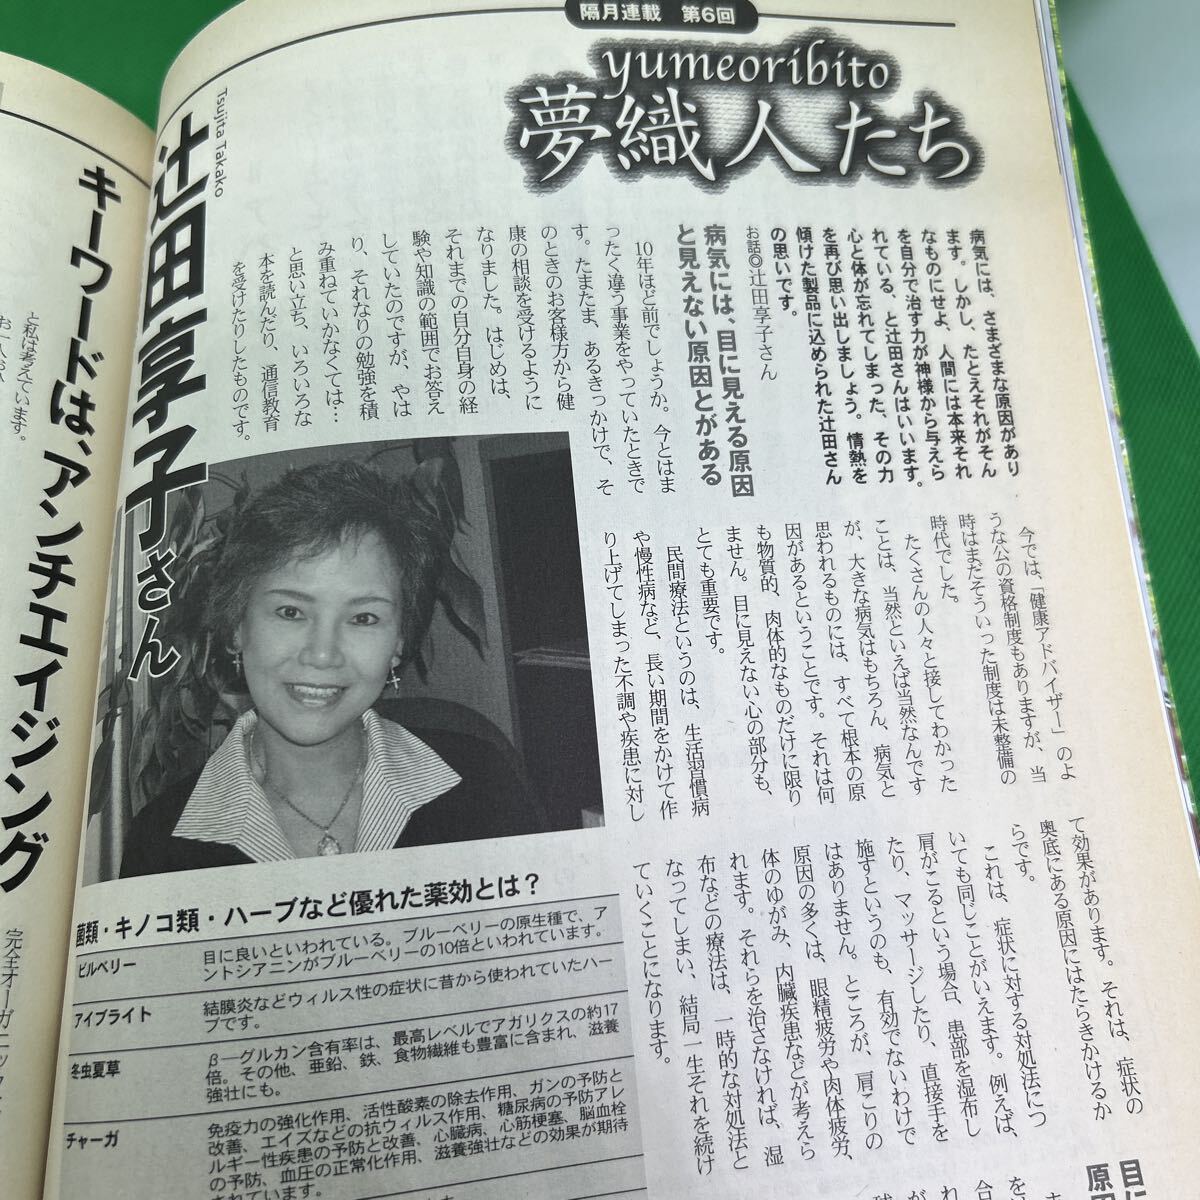 隔月連載 第6回
yumeoribito
夢織人たち
Tsujita Takako
辻田享子さん
病気には、さまざまな原因があり
ます。しかし、たとえそれがそん
なものにせよ、人間には本来それ
を自分で治す力が神様から与えら
れている、と辻田さんはいいます。
心と体が忘れてしまった、その力
を再び思い出しましょう。情熱を
傾けた製品に込められた辻田さん
の思いです。
お話◎辻田享子さん
病気には、目に見える原因
と見えない原因とがある
10年ほど前でしょうか。今とはま
ったく違う事業をやっていたときで
す。たまたま、あるきっかけで、そ
のときのお客様方から健
康の相談を受けるように
なりました。はじめは、
それまでの自分自身の経
験や知識の範囲でお答え
していたのですが、やは
り、それなりの勉強を積
み重ねていかなくては…
と思い立ち、いろいろな
本を読んだり、通信教育
を受けたりしたものです。
今では、「健康アドバイザー」のよ
うな公の資格制度もありますが、当
時はまだそういった制度は未整備の
時代でした。
たくさんの人々と接してわかった
ことは、当然といえば当然なんです
が、大きな病気はもちろん、病気と
思われるものには、すべて根本の原
因があるということです。それは何
も物質的、肉体的なものだけに限り
ません。目に見えない心の部分も、
とても重要です。
民間療法というのは、生活習慣病
や慢性病など、長い期間をかけて作
り上げてしまった不調や疾患に対し
て効果があります。それは、症状の
奥底にある原因にはたらきかけるか
らです。
これは、症状に対する対処法につ
いても同じことがいえます。例えば、
肩がこるという場合、患部を湿布し
たり、マッサージしたり、直接手を
施すというのも、有効でないわけで
はありません。ところが、肩こりの
原因の多くは、眼精疲労や肉体疲労、
体のゆがみ、内臓疾患などが考えら
れます。それらを治さなければ、湿
布などの療法は、一時的な対処法と
なってしまい、結局一生それを続け
ていくことになります。
菌類・キノコ類・ハーブなど優れた薬効とは?
ビルベリー
目に良いといわれている。ブルーベリーの原生種で、ア
ントシアニンがブルーベリーの10倍といわれています。
アイブライト
結膜炎などウィルス性の症状に昔から使われていたハー
ブです。
冬虫夏草
β―グルカン含有率は、最高レベルでアガリクスの約17
倍。その他、亜鉛、鉄、食物繊維も豊富に含まれ、滋養
強壮にも。
チャーガ
免疫力の強化作用、活性酸素の除去作用、ガンの予防と
改善、エイズなどの抗ウィルス作用、糖尿病の予防アレ
ルギー性疾患の予防と改善、心臓病、心筋梗塞、脳血栓
の予防、血圧の正常化作用、滋養強壮などの効果が期待
されています。
キーワードは、アンチエイジング
と私は考えています。
完全オーガニック